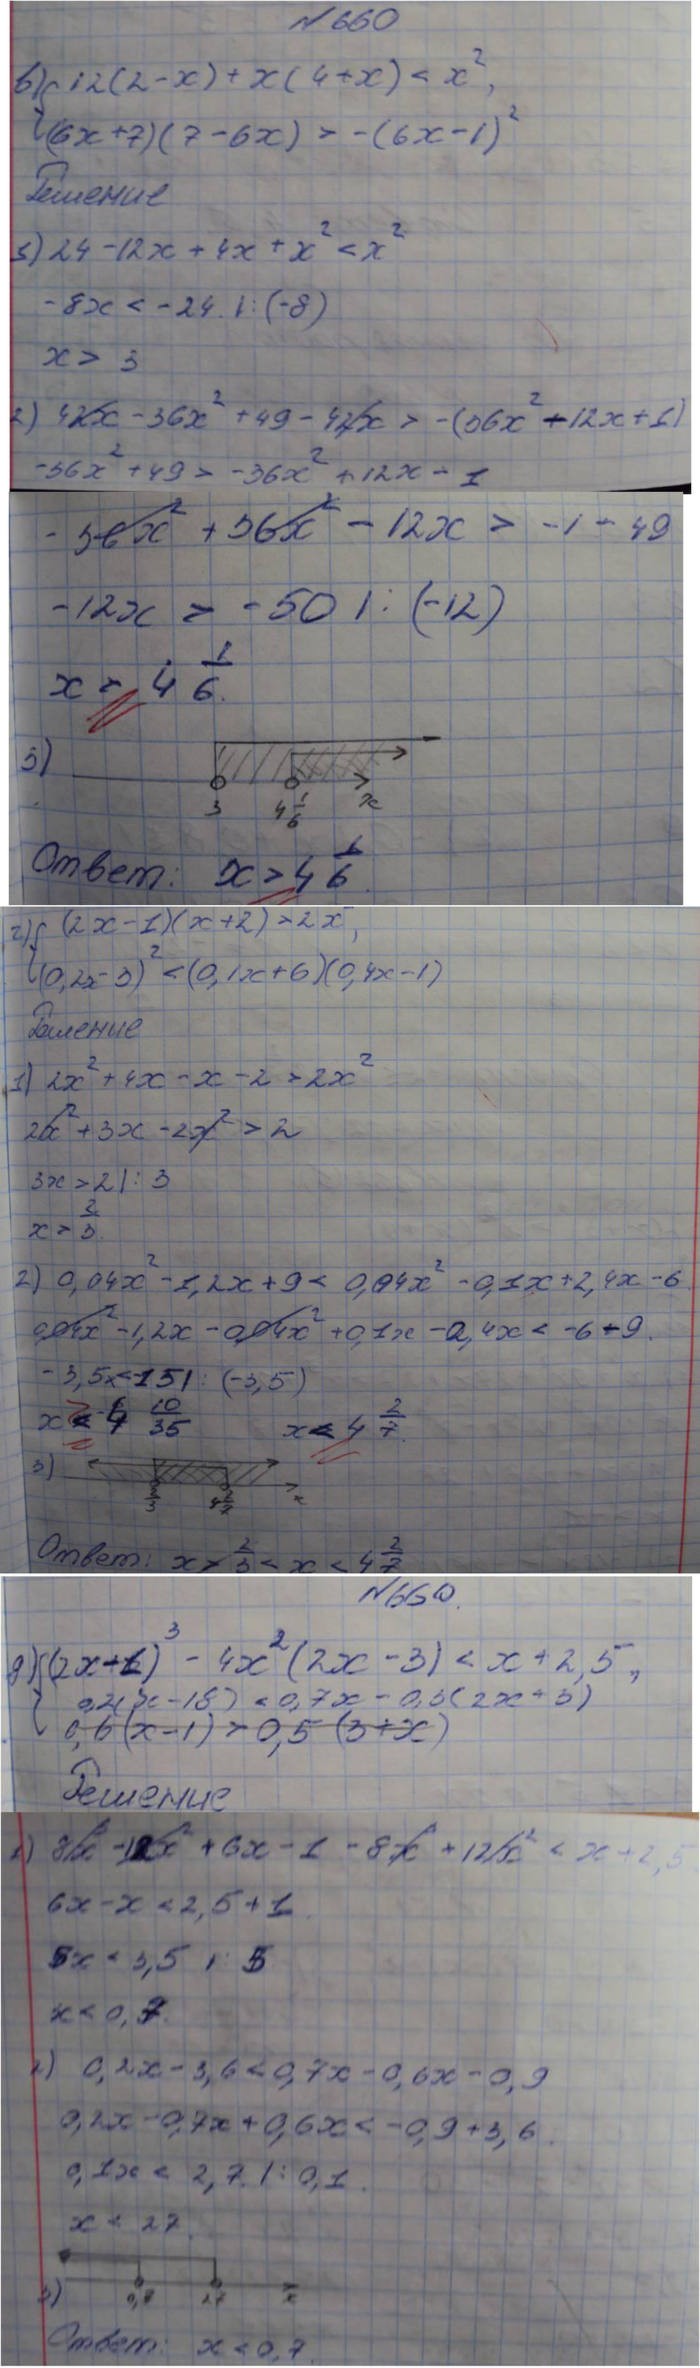 №660
в) { 12(2-x)+x(4+x)<x²,
(6x+7)(7-6x)>-(6x-1)²
Решение
1) 24-12x+4x+x²<x²
-8x<-24 |:(-8)
x>3
2) 42x-36x²+49-42x>-(36x²-12x+1)
-36x²+49>-36x²+12x-1
-36x²+36x²-12x>-1-49
-12x>-50 |:(-12)
x> 4 1/6.
3)
3 4 1/6 x
Ответ: x>4 1/6.
г) { (2x-1)(x+2)>2x²,
(0,2x-3)²<(0,1x+6)(0,4x-1)
Решение
1) 2x²+4x-x-2>2x²
2x²+3x-2x²>2
3x>2 |:3
x>2/3.
2) 0,04x²-1,2x+9<0,04x²-0,1x+2,4x-6.
0,04x²-1,2x-0,04x²+0,1x-2,4x<-6-9.
-3,5x<-15 |:(-3,5)
x< 4 10/35 x<4 2/7.
3)
2/3 4 2/7 x
Ответ: x> 2/3<x<4 2/7
№660.
д) { (2x-1)³-4x²(2x-3)<x+2,5,
0,2(x-18)<0,7x-0,3(2x+3)
0,6(x-1)>0,5(3+x)
Решение
1) 8x³-12x²+6x-1-8x³+12x²<x+2,5
6x-x<2,5+1.
5x<3,5 |:5
x<0,7.
2) 0,2x-3,6<0,7x-0,6x-0,9
0,2x-0,7x+0,6x<-0,9+3,6.
0,1x<2,7 |:0,1.
x<27.
3)
0,7 27 x
Ответ: x<0,7.